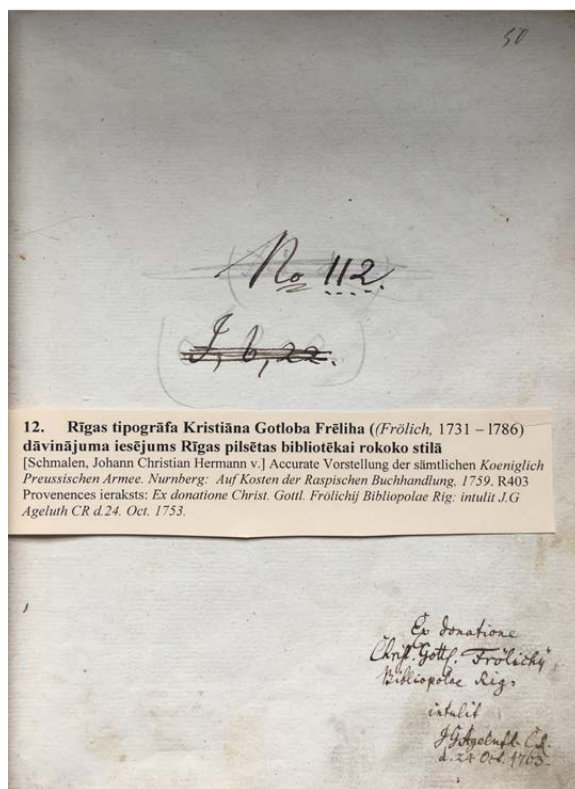 50
No 112.
J, b, 22.
12. Rīgas tipogrāfa Kristiāna Gotloba Frēliha ((Frölich, 1731 – 1786)
dāvinājuma iesējums Rīgas pilsētas bibliotēkai rokoko stilā
[Schmalen, Johann Christian Hermann v.] Accurate Vorstellung der sämtlichen Koeniglich
Preussischen Armee. Nurnberg: Auf Kosten der Raspischen Buchhandlung, 1759. R403
Provenences ieraksts: Ex donatione Christ. Gottl. Frölichij Bibliopolae Rig: intulit J.G
Ageluth CR d.24. Oct. 1753.
Ex donatione
Christ. Gottl. Frölichij
Bibliopolae Rig:
intulit
J G Ageluth C.R.
d. 24 Oct. 1763.